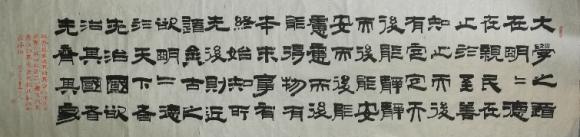 大學之道
在明〻德
在親民在
止於至善
知止而後
有定〻而
後能靜〻
而後能安
安而後能
慮〻而後
能得物有
本末事有
終始知所
先後則近
道矣古之
欲明〻德
於天下者
先治國欲
治其國者
先齊其家